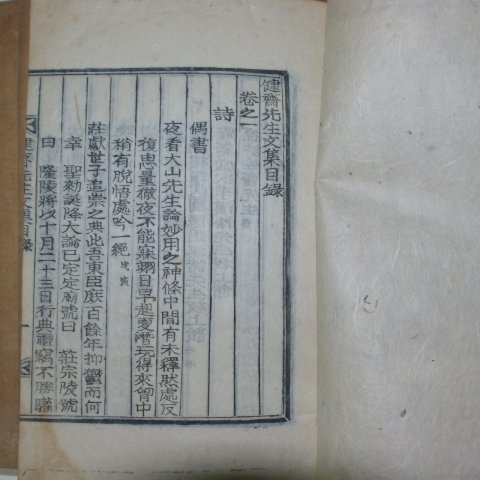 健齋先生文集目錄
卷之一
詩
偶書
夜看大山先生論妙用之神條中間有未釋然處反
復思量徹夜不能寐翊日早起更潛玩得來胷中
稍有脫悟處吟一絕 戊寅
莊獻世子追崇之典此吾東臣庶百餘年抑鬱而何
幸 聖勅誕降大論已定定廟號曰 莊宗陵號
曰 隆陵將以十月二十三日行典禮竊不勝驩
健齋先生文集目錄
一